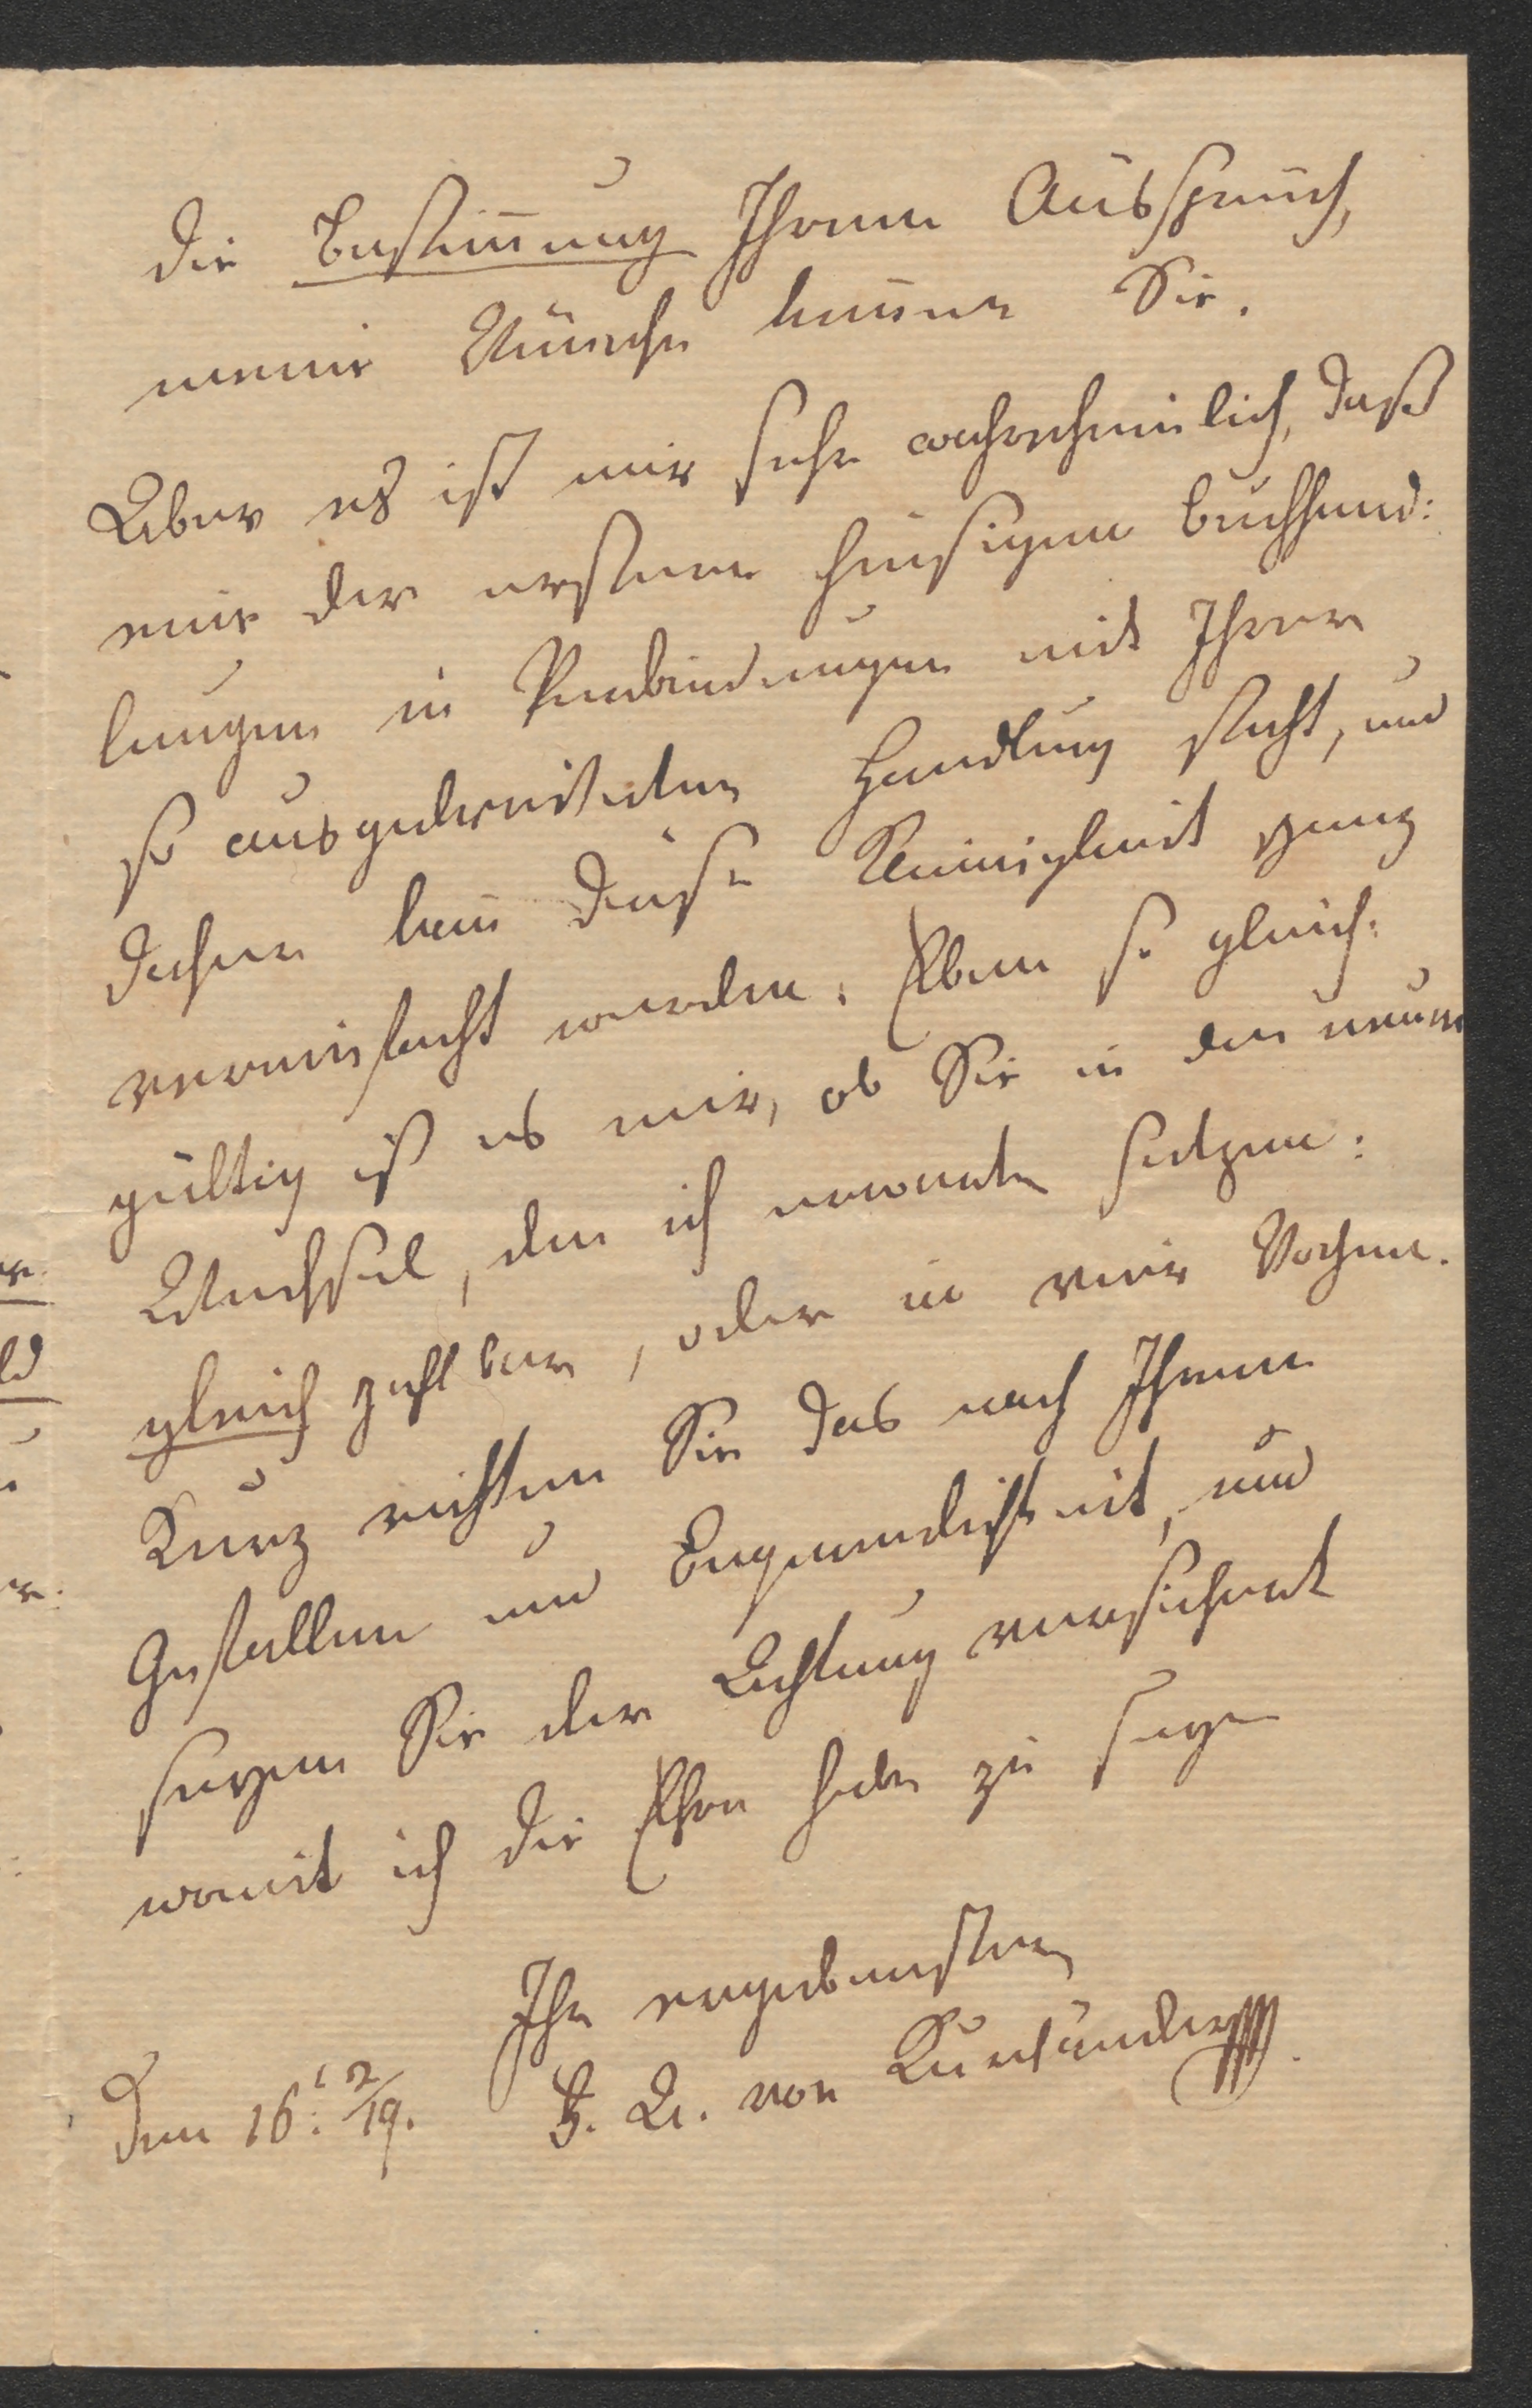 die Bestim̅ung Ihrem Ausspruch,
meine Wünsche kennen Sie.
Aber es ist mir sehr wahrscheinlich, daß
eine der ersteren hiesigen Buchhand:
lungen in Verbindungen mit Ihrer
so ausgebreiteten Handlung steht, und
daher kan̅ diese Kleinigkeit ganz
vereinfacht werden. Eben so gleich:
gültig ist es mir, ob Sie in den neuen
Wechsel, den ich erwarte setzen:
gleich zahlbar, oder in vier Wochen.
Kurz richten Sie das nach Ihrem
Gefallen und Bequemlichkeit, und
seyen Sie der Achtung versichert
womit ich die Ehre habe zu seyn
Ihr ergebenster
F. A. von Kurländer
Den 16. 2/19.